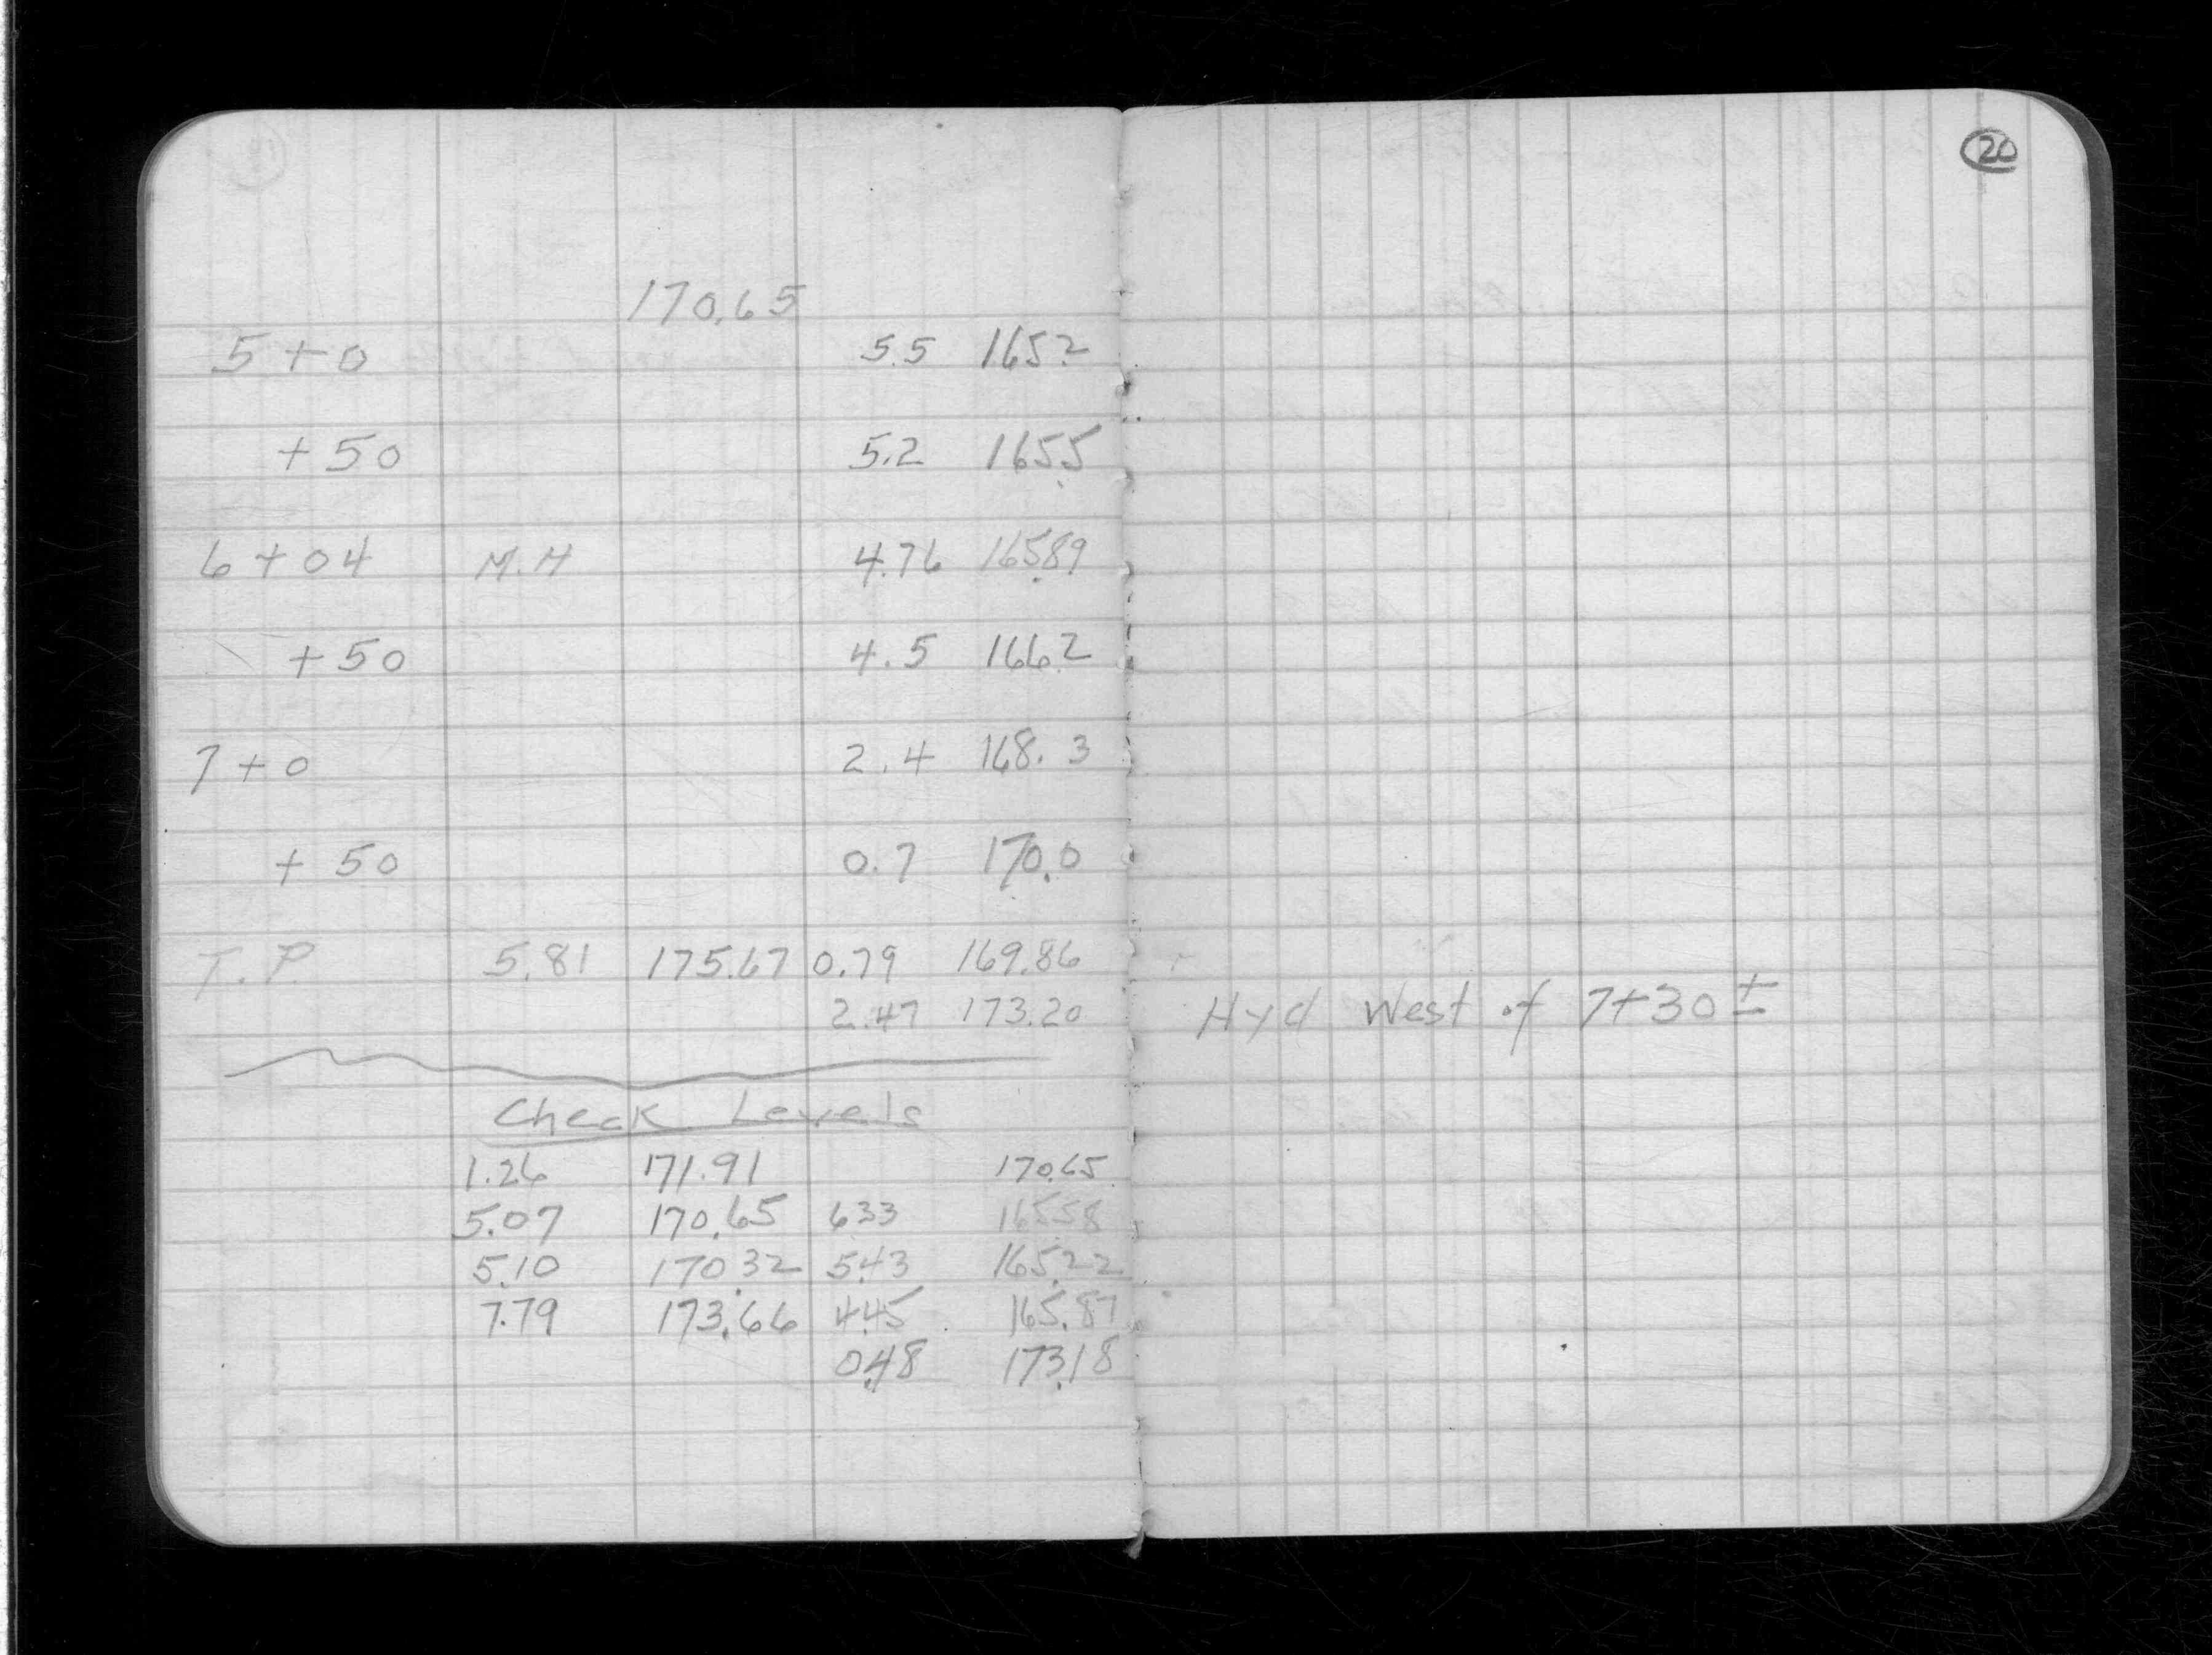 20
170.65
5+0 5.5 165.2
+50 5.2 165.5
6+04 M.H 4.76 165.89
+50 4.5 166.2
7+0 2.4 168.3
+50 0.7 170.0
T.P. 5.81 175.67 0.79 169.86
2.47 173.20 Hyd West of 7+30±
Check Levels
1.26 171.91 170.65
5.07 170.65 6.33 165.58
5.10 170.32 5.43 165.22
7.79 173.66 4.45 165.87
0.48 173.18